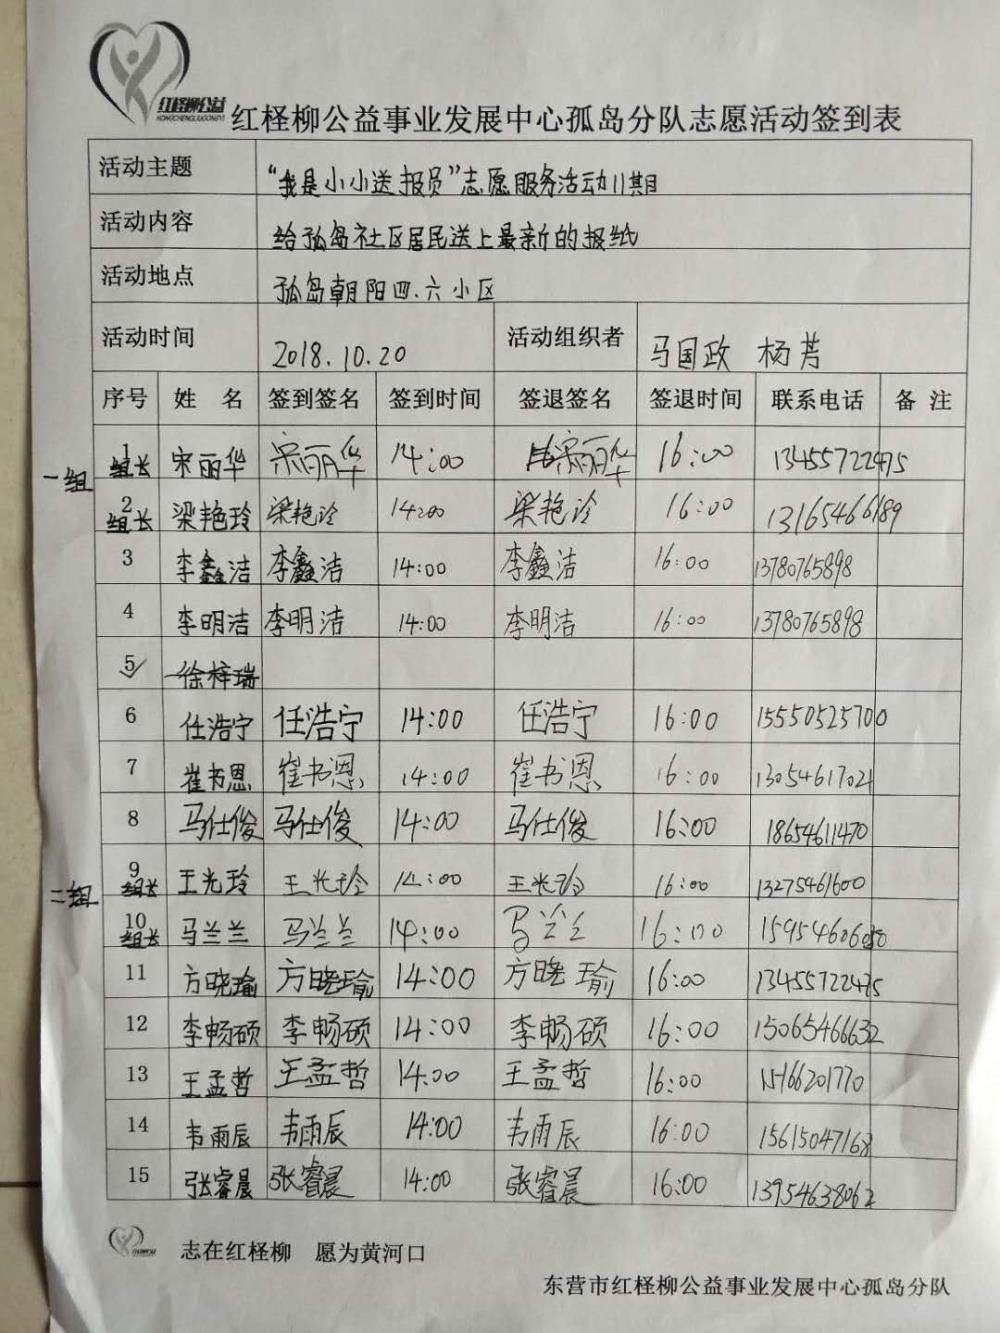 红柽柳公益
HONGCHENGLIUGONGYI
红柽柳公益事业发展中心孤岛分队志愿活动签到表
活动主题 “我是小小送报员”志愿服务活动11期
活动内容 给孤岛社区居民送上最新的报纸
活动地点 孤岛朝阳四.六小区
活动时间 2018.10.20 活动组织者 马国政 杨芳
序号 姓名 签到签名 签到时间 签退签名 签退时间 联系电话 备注
一组 1 组长 宋丽华 宋丽华 14:00 宋丽华 16:00 13455722475
2 组长 梁艳玲 梁艳玲 14:00 梁艳玲 16:00 13165466189
3 李鑫洁 李鑫洁 14:00 李鑫洁 16:00 13780765898
4 李明洁 李明洁 14:00 李明洁 16:00 13780765898
5 徐梓瑞
6 任浩宁 任浩宁 14:00 任浩宁 16:00 15550525700
7 崔书恩 崔书恩 14:00 崔书恩 16:00 13054617021
8 马仕俊 马仕俊 14:00 马仕俊 16:00 18654611470
二组 9 组长 王光玲 王光玲 14:00 王光玲 16:00 13275461600
10 组长 马兰兰 马兰兰 14:00 马兰兰 16:00
11 方晓瑜 方晓瑜 14:00 方晓瑜 16:00 13455722475
12 李畅硕 李畅硕 14:00 李畅硕 16:00 15065466632
13 王孟哲 王孟哲 14:00 王孟哲 16:00 15166201770
14 韦雨辰 韦雨辰 14:00 韦雨辰 16:00 15615047168
15 张睿晨 张睿晨 14:00 张睿晨 16:00 13954638062
志在红柽柳 愿为黄河口
东营市红柽柳公益事业发展中心孤岛分队